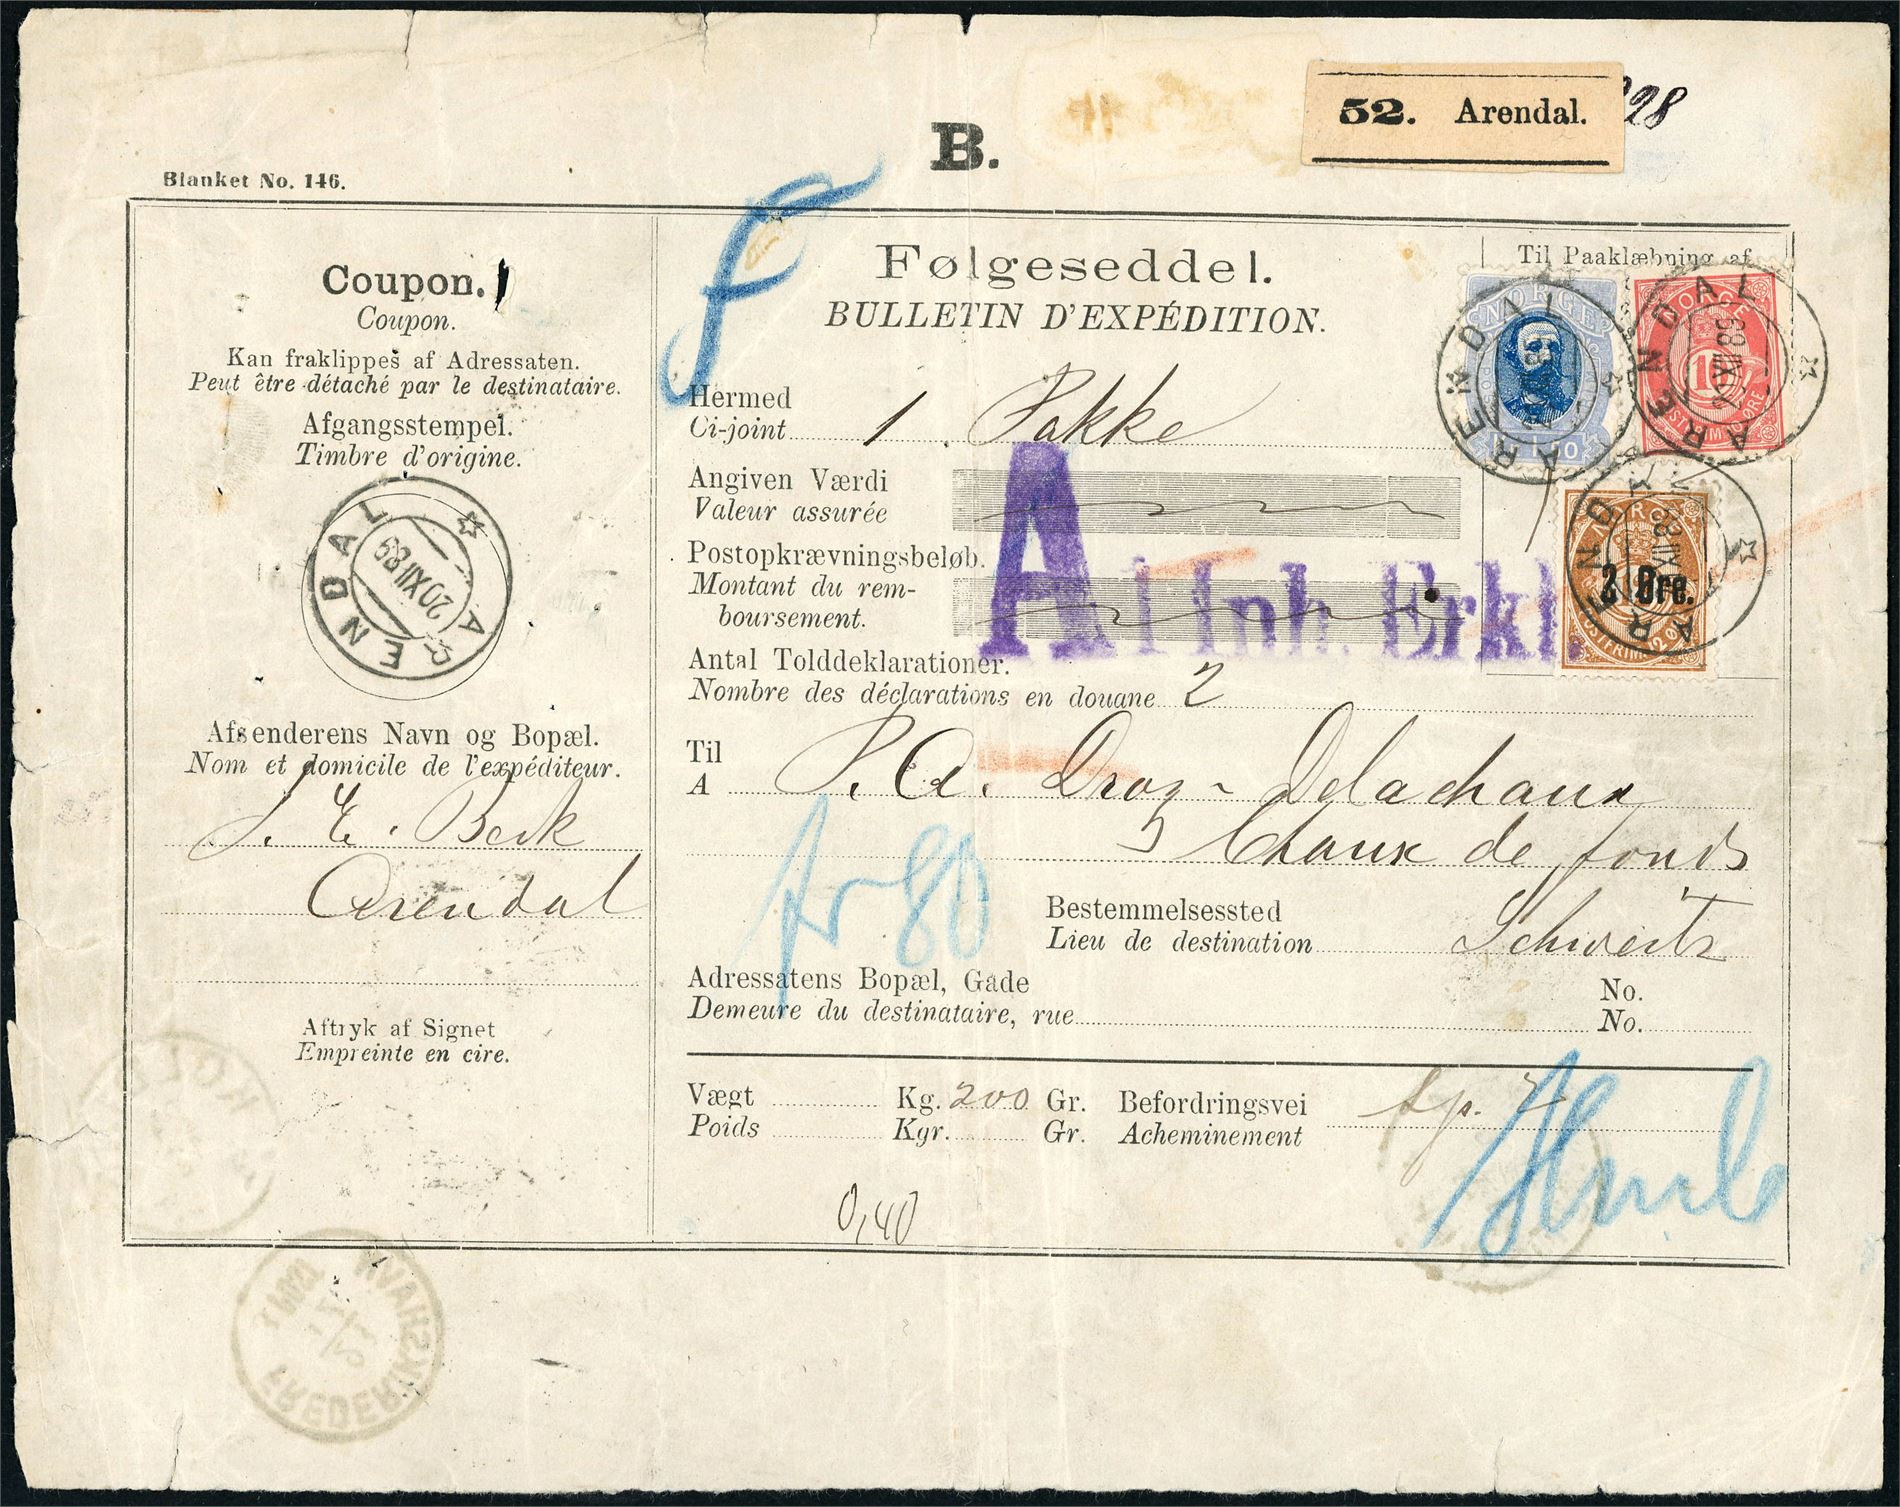 52. Arendal.
228
B.
Blanket No. 146.
Coupon.
Coupon.
Kan fraklippes af Adressaten.
Peut être détaché par le destinataire.
Afgangsstempel.
Timbre d'origine.
ARENDAL
20 XII 89
Afsenderens Navn og Bopæl.
Nom et domicile de l'expéditeur.
J. E. Beck
Arendal
Aftryk af Signet
Empreinte en cire.
Følgeseddel.
BULLETIN D'EXPÉDITION.
Til Paaklæbning af
NORGE
1.50
NORGE
10
ARENDAL
ARENDAL
Hermed
Ci-joint 1 Pakke
Angiven Værdi
Valeur assurée
Postopkrævningsbeløb.
Montant du rem-
boursement.
A l Inh. Erkl.
NORGE
2 Øre.
ARENDAL
Antal Tolddeklarationer.
Nombre des déclarations en douane 2
Til
A P. A. Droz-Delachaux
Chaux de fonds
fr 80
Bestemmelsessted
Lieu de destination Schweitz
Adressatens Bopæl, Gade No.
Demeure du destinataire, rue No.
Vægt Kg. 200 Gr. Befordringsvei
Poids Kgr. Gr. Acheminement
0,40
FREDERIKSHAVN